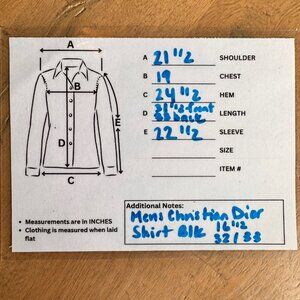 A
B
D
E
C
A 21 1/2 SHOULDER
B 19 CHEST
C 24 1/2 HEM
D 31 1/2 front LENGTH
33 back
E 22 1/2 SLEEVE
SIZE
ITEM #
• Measurements are in INCHES
• Clothing is measured when laid
flat
Additional Notes:
Mens Christian Dior
Shirt Blk 16 1/2
32/33